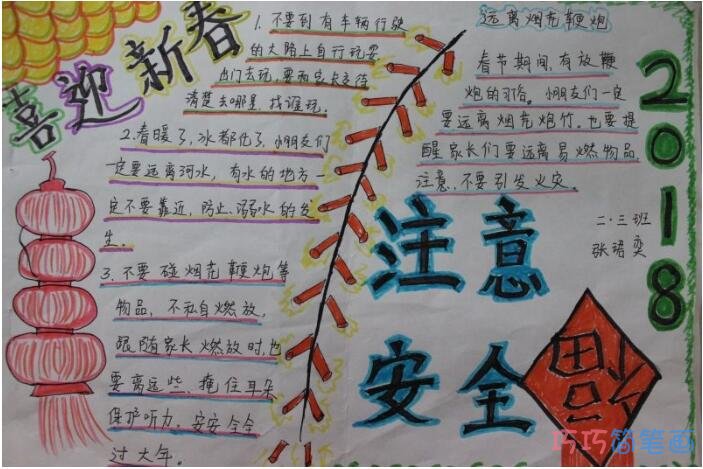 喜迎新春
1.不要到有车辆行驶
的大路上自行玩耍
出门去玩,要和家长交待
清楚去哪里,找谁玩。
2.春暖了,冰都化了,小朋友们
一定要远离河水,有水的地方一
定不要靠近,防止溺水的发
生。
3.不要碰烟花鞭炮等
物品,不私自燃放,
跟随家长燃放时,也
要离远些、掩住耳朵
保护听力。安安全全
过大年。
远离烟花鞭炮
春节期间,有放鞭
炮的习俗。小朋友们一定
要远离烟花炮竹。也要提
醒家长们要远离易燃物品,
注意、不要引发火灾。
2018
二·三班
张珺奕
注意
安全
福
巧巧简笔画